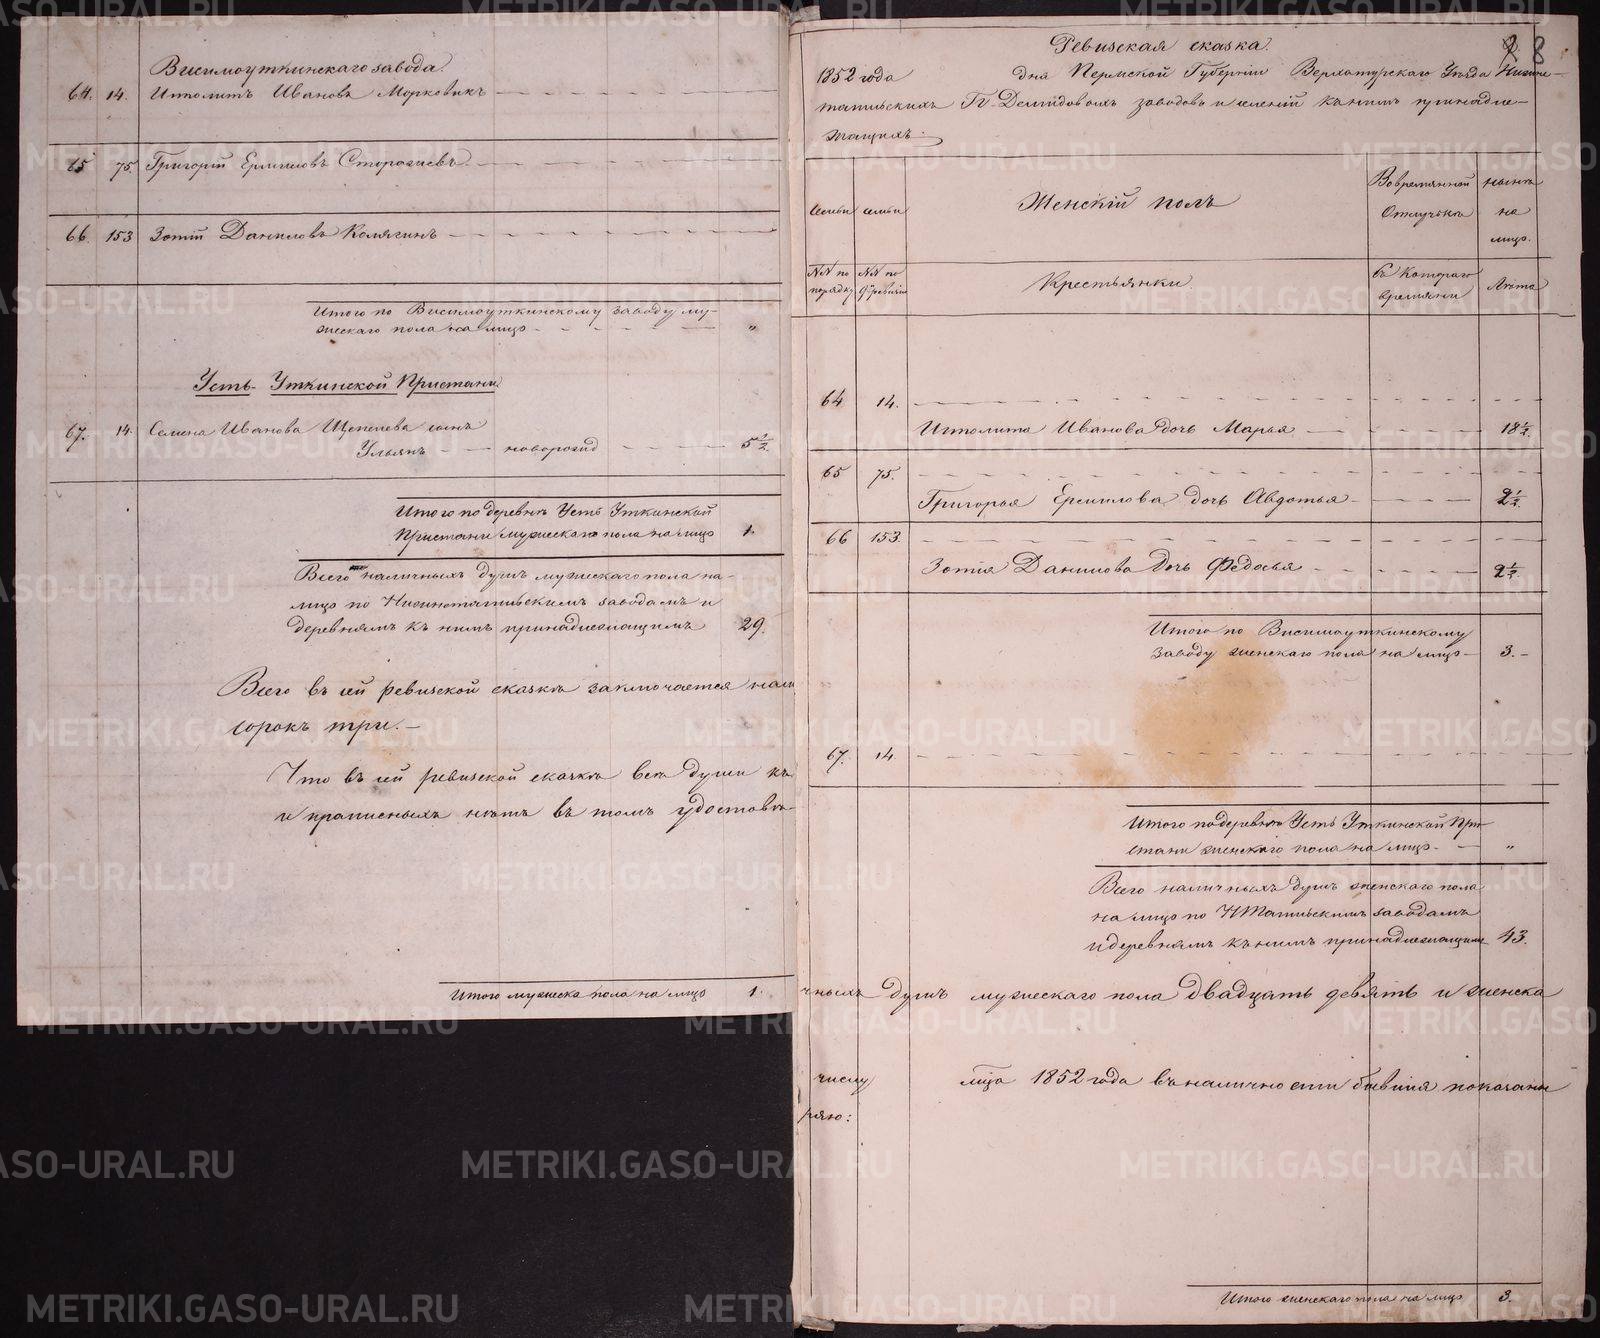 Висимоуткинскаго завода.
64. 14. Иполитъ Ивановъ Морковкинъ
65 75. Григорій Ермиловъ Сторожевъ
66 153 Зотій Даниловъ Колягинъ
Итого по Висимоуткинскому заводу му-
жескаго пола на лицо "
Усть-Уткинской Пристани
67. 14. Семена Иванова Щепелева сынъ
Ульянъ — новорожд 5 1/2.
Итого по деревнѣ Усть Уткинской
Пристани мужескаго пола на лицо 1.
Всего наличныхъ душъ мужескаго пола на-
лицо по Нижнетагильскимъ заводамъ и
деревнямъ къ нимъ принадлежащимъ 29.
Всего въ сей ревизской сказкѣ заключается нали
сорокъ три.—
Что въ сей ревизской сказкѣ всѣ души къ
и прописныхъ нѣтъ въ томъ удостовѣ-
Итого мужеска пола на лицо 1.
8
Ревизская сказка.
1852 года дня Пермской Губерніи Верхотурскаго Уѣзда Нижне-
тагильскихъ Гг. Демидовыхъ заводовъ и селеній къ нимъ принадле-
жащихъ.
Семьи семьи Женскій полъ Во временной Отлучкѣ нынѣ на лицо.
№№ по порядку №№ по 9й ревизіи Крестьянки. Съ Котораго времяни Лѣта
64 14.
Иполита Иванова дочь Марья 18 1/2.
65 75.
Григорья Ермилова дочь Авдотья 2 1/2.
66 153.
Зотія Данилова дочь Федосья 2 1/2.
Итого по Висимоуткинскому
Заводу женскаго пола на лицо 3.
67. 14.
Итого по деревнѣ Усть Уткинской При-
стани женскаго пола на лицо. "
Всего наличныхъ душъ женскаго пола
на лицо по НТагильскимъ заводамъ
и деревнямъ къ нимъ принадлежащимъ 43.
чныхъ душъ мужескаго пола двадцать девять и женска
числу мца 1852 года въ наличности бывшія показаны
ряю:
Итого женскаго пола на лицо 3.
METRIKI.GASO-URAL.RU